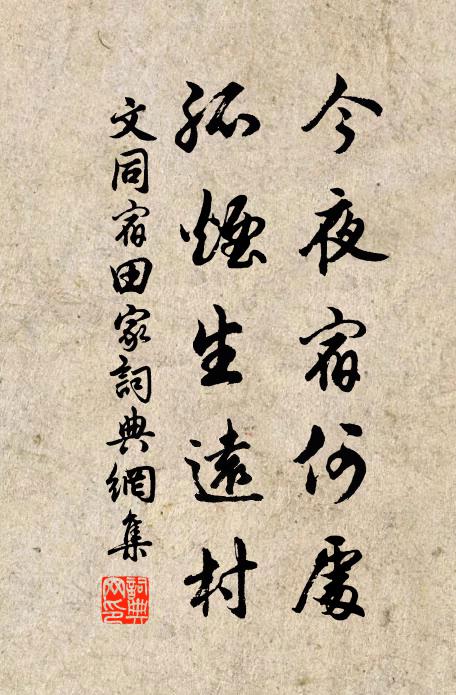 今夜宿何處
孤煙生遠村
文同宿田家詞典網集
詞典網印